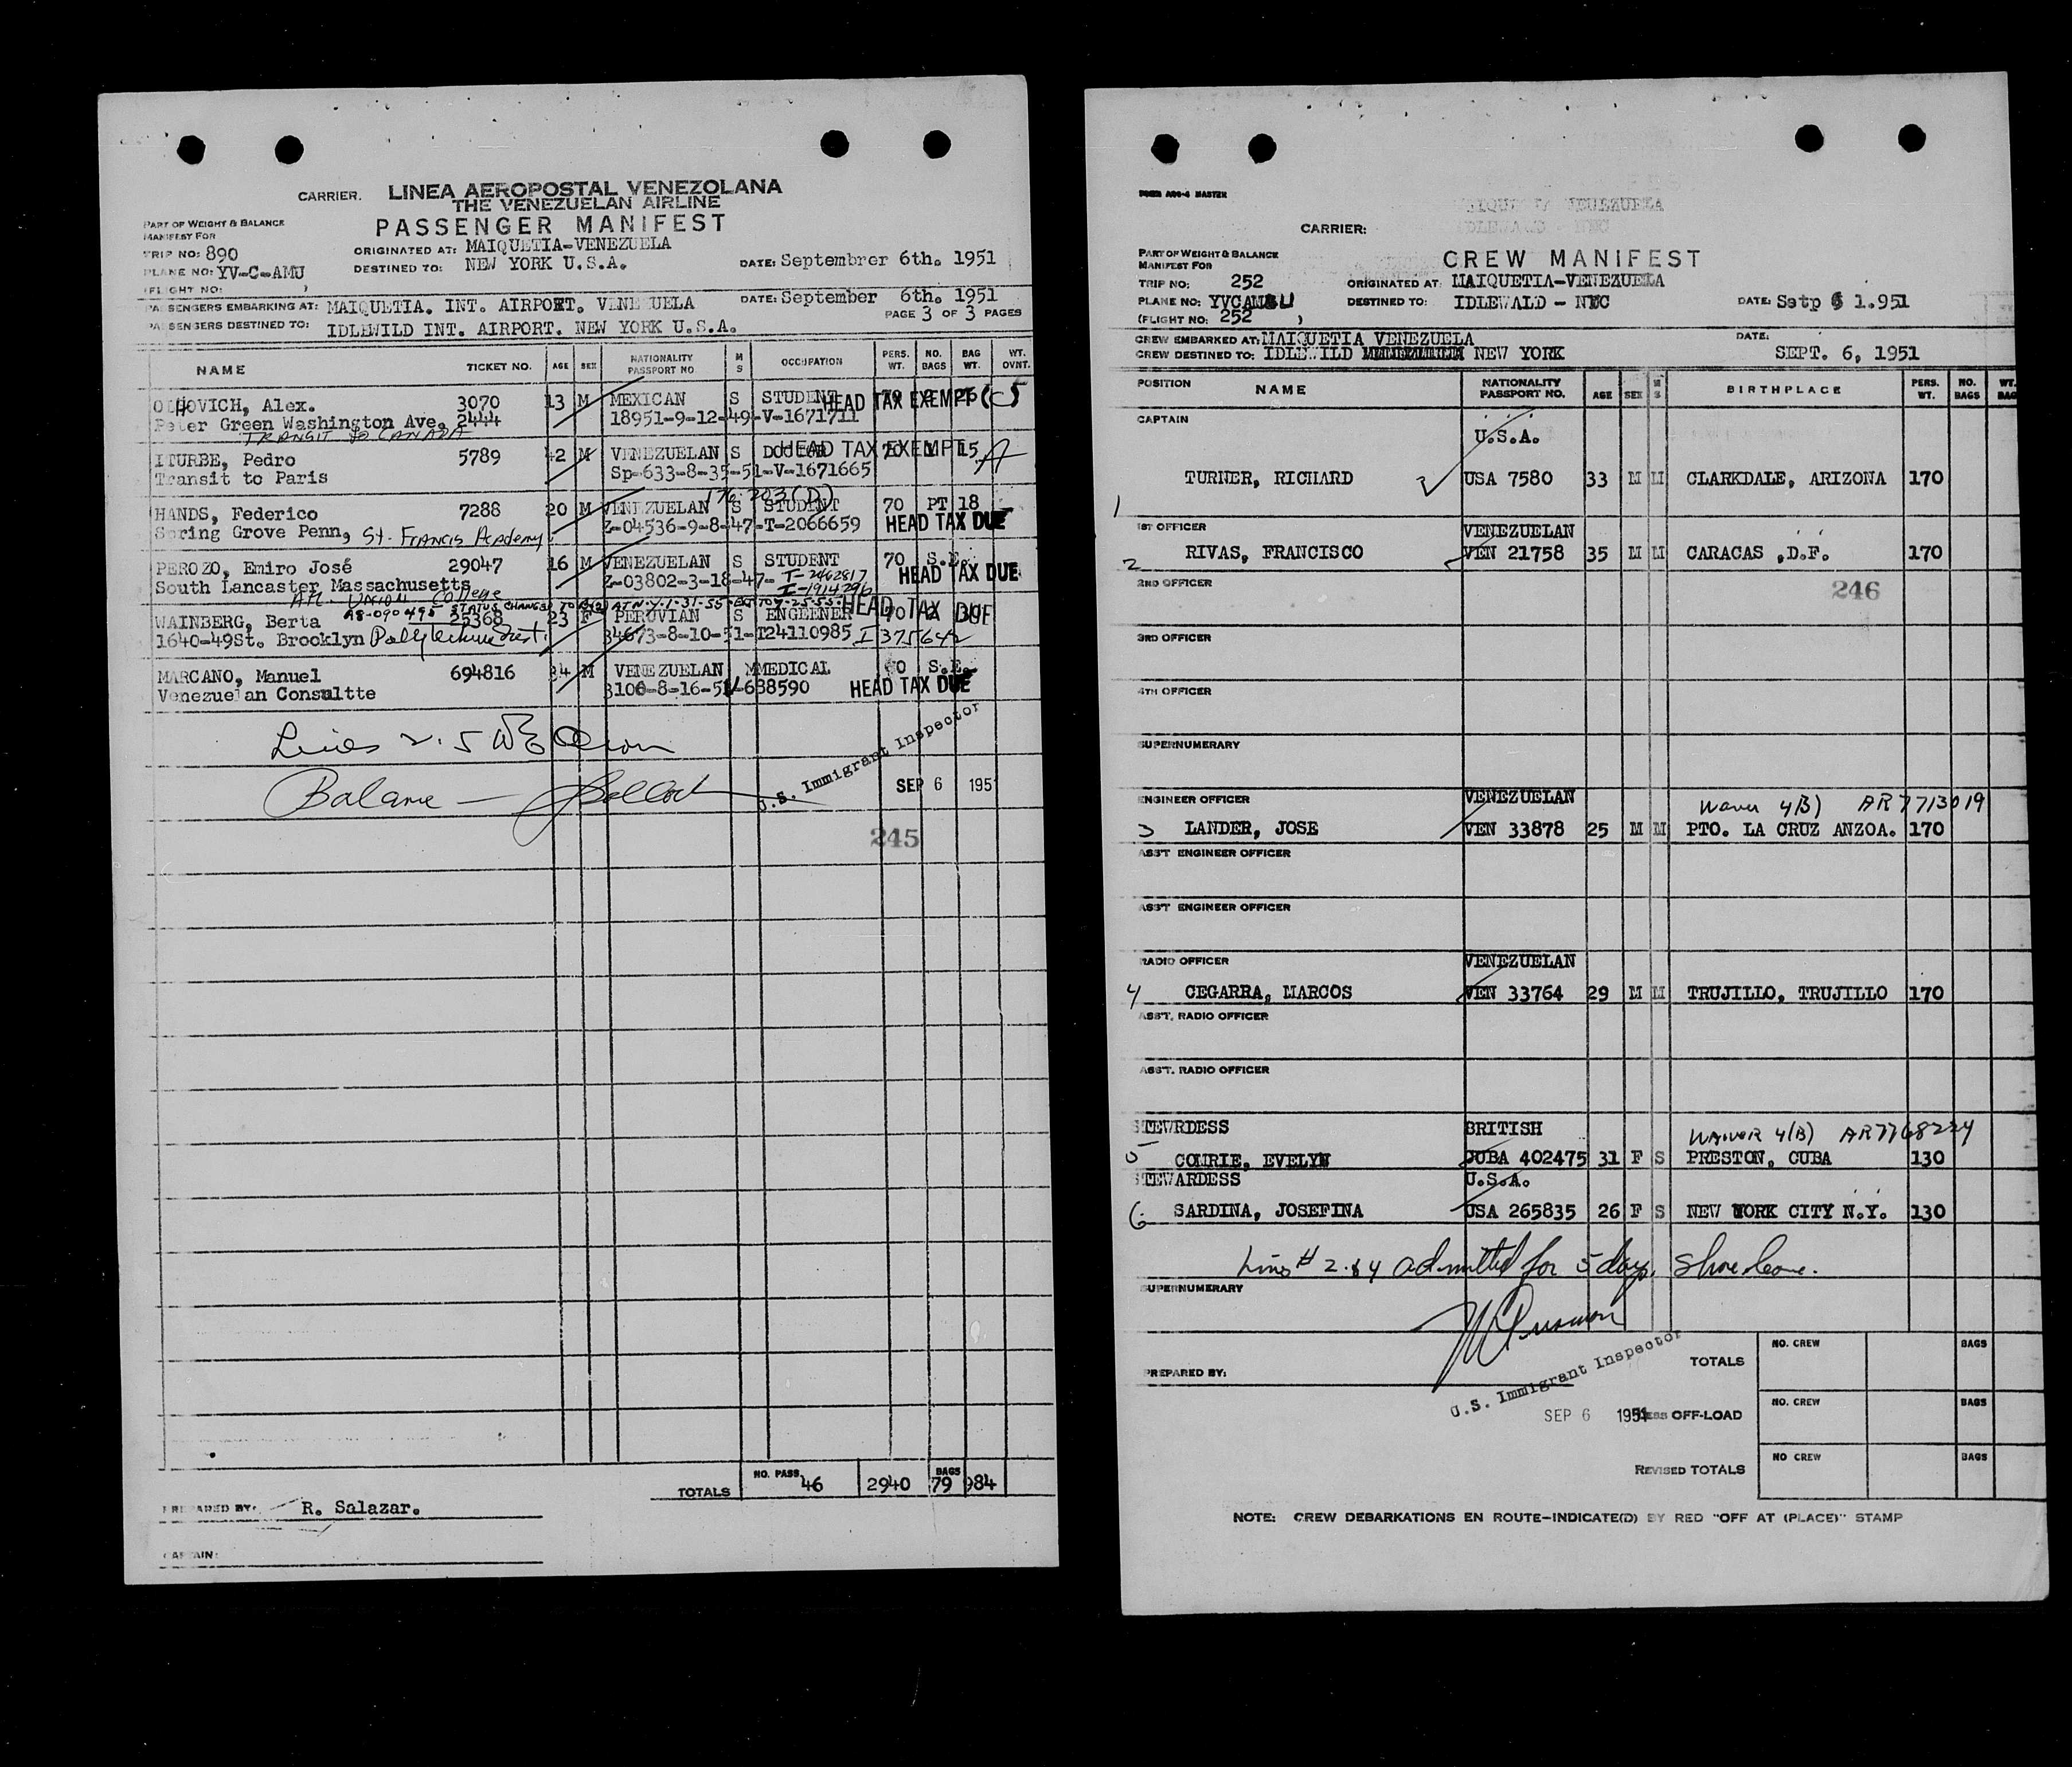 CARRIER. LINEA AEROPOSTAL VENEZOLANA
THE VENEZUELAN AIRLINE
PASSENGER MANIFEST
PART OF WEIGHT & BALANCE
MANIFEST FOR
TRIP NO: 890
PLANE NO: YV-C-AMU
(FLIGHT NO: )
ORIGINATED AT: MAIQUETIA-VENEZUELA
DESTINED TO: NEW YORK U.S.A.
DATE: Septembrer 6th. 1951
PASSENGERS EMBARKING AT: MAIQUETIA. INT. AIRPORT. VENEZUELA DATE: September 6th. 1951
PAGE 3 OF 3 PAGES
PASSENGERS DESTINED TO: IDLEWILD INT. AIRPORT. NEW YORK U.S.A.
NAME TICKET NO. AGE SEX NATIONALITY PASSPORT NO M S OCCUPATION PERS. WT. NO. BAGS BAG WT. WT. OVNT.
OCHOVICH, Alex. 3070 13 M MEXICAN S STUDENT HEAD TAX EXEMPT
Peter Green Washington Ave. 2444 18951-9-12-49-V-1671711
TRANSIT to CANADA
ITURBE, Pedro 5789 42 M VENEZUELAN S HEAD TAX EXEMPT 15 A
Transit to Paris Sp-633-8-35-51-V-1671665
HANDS, Federico 7288 20 M VENEZUELAN S STUDENT 70 PT 18
Spring Grove Penn, St. Francis Academy Z-04536-9-8-47-T-2066659 HEAD TAX DUE
PEROZO, Emiro José 29047 16 M VENEZUELAN S STUDENT 70 S.E.
South Lancaster Massachusetts Z-03802-3-18-47- T-2462817 HEAD TAX DUE
Atl. Union College I-1914296
A8-090 495 STATUS CHANGED TO
WAINBERG, Berta 25368 23 F PERUVIAN S ENGEENER 70 HEAD TAX DUE
1640-49St. Brooklyn Polytechnic Inst. 34673-8-10-51-I24110985 I 375642
MARCANO, Manuel 694816 34 M VENEZUELAN M MEDICAL 60 S.E.
Venezuelan Consultte 3100-8-16-51-V-638590 HEAD TAX DUE
Lines 2.5
Balance
U.S. Immigrant Inspector
SEP 6 195
245
TOTALS NO. PASS. 46 2940 BAGS 79 984
PREPARED BY: R. Salazar.
CAPTAIN:
FORM ARG-4 MASTER
MAIQUETIA VENEZUELA
IDLEWALD - NYC
CARRIER:
CREW MANIFEST
PART OF WEIGHT & BALANCE
MANIFEST FOR
TRIP NO: 252
PLANE NO: YVCAMU
(FLIGHT NO: 252 )
ORIGINATED AT: MAIQUETIA-VENEZUELA
DESTINED TO: IDLEWALD - NYC
DATE: Setp 6 1.951
CREW EMBARKED AT: MAIQUETIA VENEZUELA DATE:
CREW DESTINED TO: IDLEWILD NEW YORK SEPT. 6, 1951
POSITION NAME NATIONALITY PASSPORT NO. AGE SEX M S BIRTHPLACE PERS. WT. NO. BAGS WT. BAG
CAPTAIN
U.S.A.
1 TURNER, RICHARD USA 7580 33 M M CLARKDALE, ARIZONA 170
1ST OFFICER VENEZUELAN
2 RIVAS, FRANCISCO VEN 21758 35 M M CARACAS ,D.F. 170
2ND OFFICER 246
3RD OFFICER
4TH OFFICER
SUPERNUMERARY
ENGINEER OFFICER VENEZUELAN Waver 4(B) AR7713019
3 LANDER, JOSE VEN 33878 25 M M PTO. LA CRUZ ANZOA. 170
ASS'T ENGINEER OFFICER
ASS'T ENGINEER OFFICER
RADIO OFFICER VENEZUELAN
4 CEGARRA, MARCOS VEN 33764 29 M M TRUJILLO, TRUJILLO 170
ASS'T. RADIO OFFICER
ASS'T. RADIO OFFICER
STEWRDESS BRITISH WAIVER 4(B) AR7768224
5 COURIE, EVELYN JUBA 402475 31 F S PRESTON, CUBA 130
STEWARDESS U.S.A.
6 SARDINA, JOSEFINA USA 265835 26 F S NEW YORK CITY N.Y. 130
Lines # 2.&4 admitted for 5 days. Shore leave.
SUPERNUMERARY
PREPARED BY:
U.S. Immigrant Inspector
SEP 6 1951
TOTALS NO. CREW BAGS
LESS OFF-LOAD NO. CREW BAGS
REVISED TOTALS NO CREW BAGS
NOTE: CREW DEBARKATIONS EN ROUTE-INDICATE(D) BY RED "OFF AT (PLACE)" STAMP